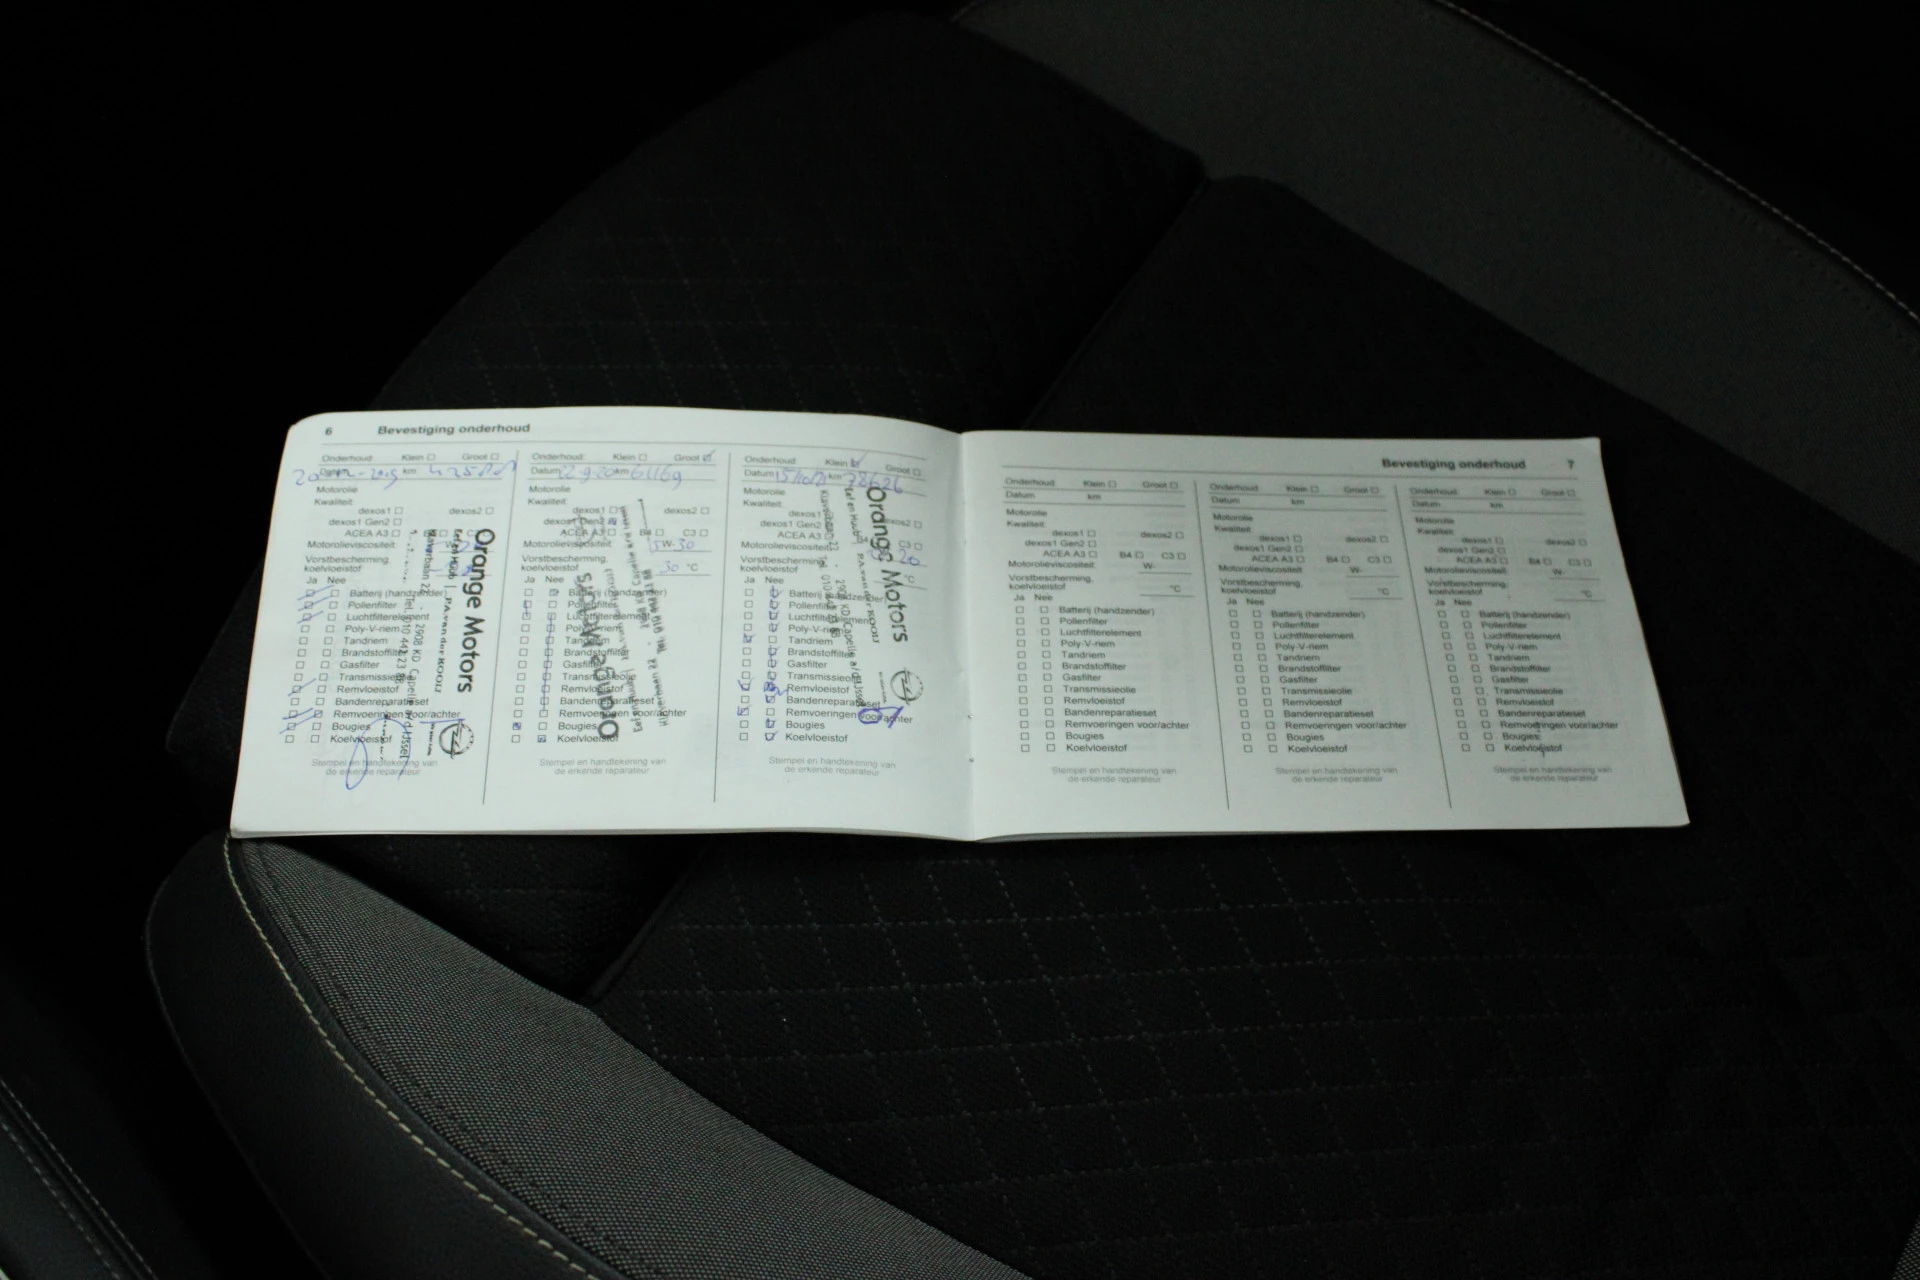 6 Bevestiging onderhoud
Onderhoud: Klein Groot
Datum km
Motorolie
Kwaliteit:
dexos1 dexos2
dexos1 Gen2
ACEA A3
Motorolieviscositeit
Vorstbescherming
koelvloeistof
Ja Nee
Batterij (handzender)
Pollenfilter
Luchtfilterelement
Poly-V-riem
Tandriem
Brandstoffilter
Gasfilter
Transmissieolie
Remvloeistof
Bandenreparatieset
Remvoeringen voor/achter
Bougies
Koelvloeistof
Stempel en handtekening van
de erkende reparateur
Orange Motors
Eef en Huub | P.A. van der KOOIJ
2908 KD Capelle a/d IJssel
Onderhoud: Klein Groot
Datum 22-9-20 km 61169
Motorolie
Kwaliteit:
dexos1 dexos2
dexos1 Gen2
ACEA A3 B4 C3
Motorolieviscositeit 5W-30
Vorstbescherming
koelvloeistof 30 °C
Ja Nee
Batterij (handzender)
Pollenfilter
Luchtfilterelement
Poly-V-riem
Tandriem
Brandstoffilter
Gasfilter
Transmissieolie
Remvloeistof
Bandenreparatieset
Remvoeringen voor/achter
Bougies
Koelvloeistof
Stempel en handtekening van
de erkende reparateur
Orange Motors
Onderhoud: Klein Groot
Datum km 78626
Motorolie
Kwaliteit:
dexos1 dexos2
dexos1 Gen2
C3
Motorolieviscositeit 20
Vorstbescherming
koelvloeistof °C
Ja Nee
Batterij (handzender)
Pollenfilter
Luchtfilterelement
Poly-V-riem
Tandriem
Brandstoffilter
Gasfilter
Transmissieolie
Remvloeistof
Bandenreparatieset
Remvoeringen voor/achter
Bougies
Koelvloeistof
Stempel en handtekening van
de erkende reparateur
Orange Motors
Eef en Huub P.A. van der KOOIJ
2908 KD Capelle a/d IJssel
Bevestiging onderhoud 7
Onderhoud: Klein Groot
Datum km
Motorolie
Kwaliteit:
dexos1 dexos2
dexos1 Gen2
ACEA A3 B4 C3
Motorolieviscositeit W-
Vorstbescherming
koelvloeistof °C
Ja Nee
Batterij (handzender)
Pollenfilter
Luchtfilterelement
Poly-V-riem
Tandriem
Brandstoffilter
Gasfilter
Transmissieolie
Remvloeistof
Bandenreparatieset
Remvoeringen voor/achter
Bougies
Koelvloeistof
Stempel en handtekening van
de erkende reparateur
Onderhoud: Klein Groot
Datum km
Motorolie
Kwaliteit:
dexos1 dexos2
dexos1 Gen2
ACEA A3 B4 C3
Motorolieviscositeit W-
Vorstbescherming
koelvloeistof °C
Ja Nee
Batterij (handzender)
Pollenfilter
Luchtfilterelement
Poly-V-riem
Tandriem
Brandstoffilter
Gasfilter
Transmissieolie
Remvloeistof
Bandenreparatieset
Remvoeringen voor/achter
Bougies
Koelvloeistof
Stempel en handtekening van
de erkende reparateur
Onderhoud: Klein Groot
Datum km
Motorolie
Kwaliteit:
dexos1 dexos2
dexos1 Gen2
ACEA A3 B4 C3
Motorolieviscositeit W-
Vorstbescherming
koelvloeistof °C
Ja Nee
Batterij (handzender)
Pollenfilter
Luchtfilterelement
Poly-V-riem
Tandriem
Brandstoffilter
Gasfilter
Transmissieolie
Remvloeistof
Bandenreparatieset
Remvoeringen voor/achter
Bougies
Koelvloeistof
Stempel en handtekening van
de erkende reparateur